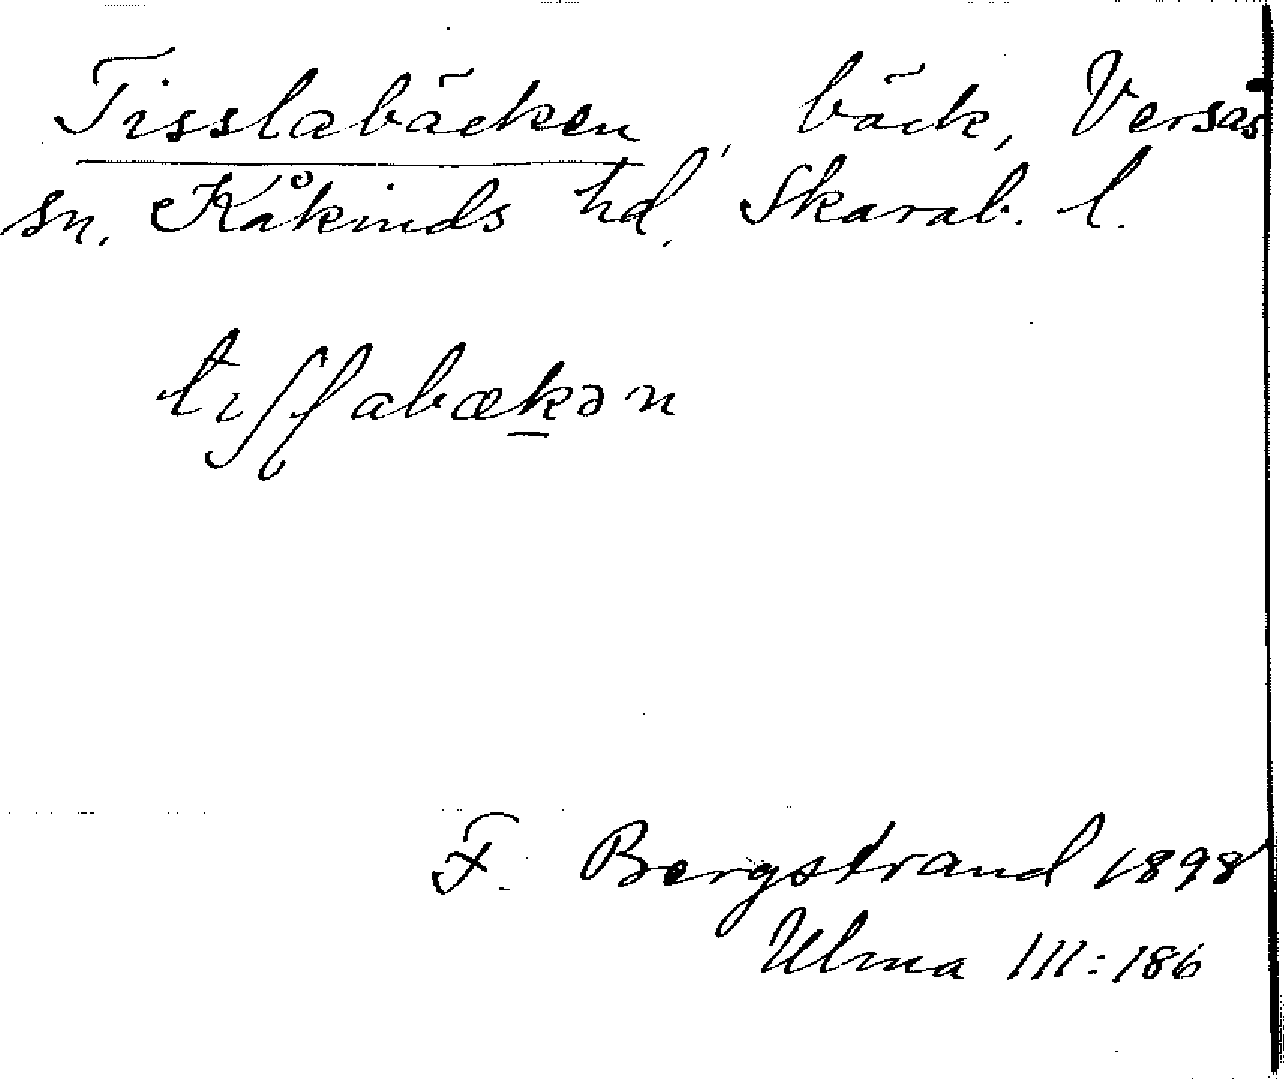 Tisslabäcken bäck, Versås
sn. Kåkinds hd, Skarab. l.
tɩʃʃabækən
F. Bergstrand 1898
Ulma 111:186